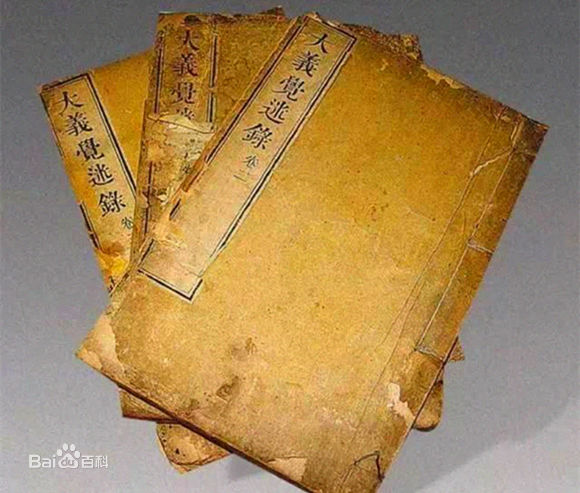 大義覺迷錄 卷
大義覺迷
大義覺迷錄 卷二
Bai du 百科